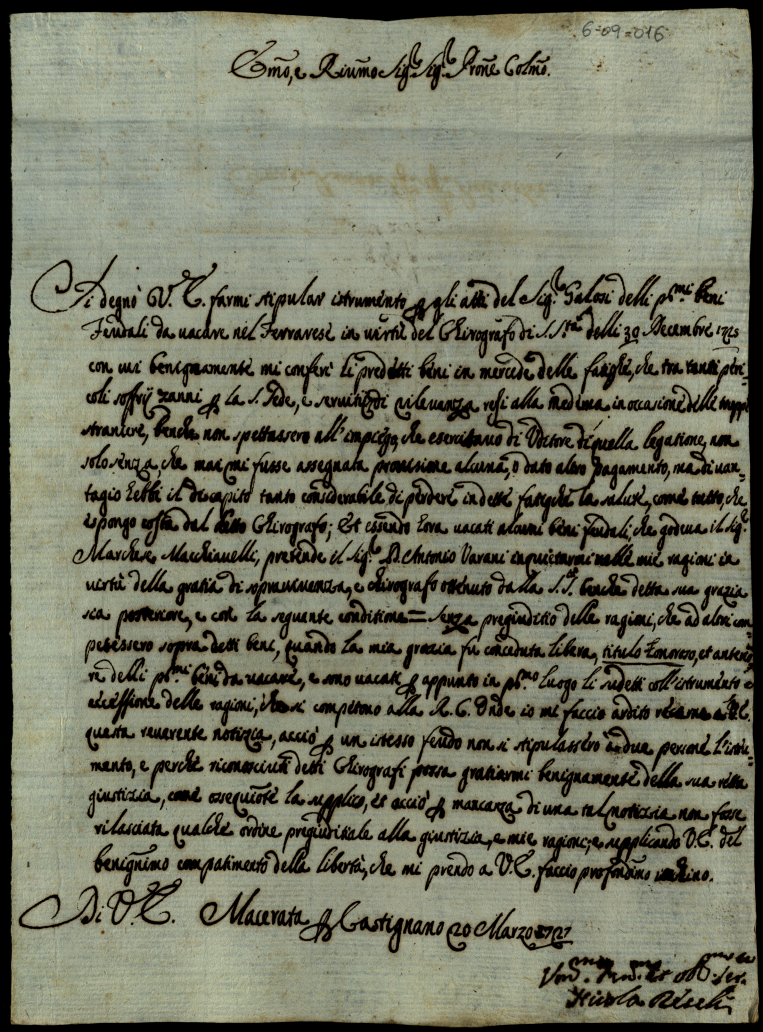 6=09=016
Emo, e Rmo Sig.r Sig.r Prone Colmo.
Si degnò V. E. farmi stipular istrumento per gli atti del Sig.r Galosi delli p.mi beni
Feudali da vacare nel Ferrarese in virtù del Chirografo di S. S.tà delli 30 Decembre 1725
con cui benignamente mi conferì li predetti beni in mercede delle fatighe, che tra tanti peri=
coli soffrij anni per la S. Sede, e servitij di rilevanza resi alla medema in occasione delle truppe
straniere, benche non spettassero all'impiego, che esercitavo di Uditore di quella legatione, non
solo senza, che mai mi fusse assegnata provisione alcuna, o dato altro pagamento, ma di van=
tagio hebbi il discapito tanto considerabile di perdere in dette fatighe la salute, come tutto, che
espongo costa dal detto Chirografo; Et essendo hora vacati alcuni beni feudali, che godeva il Sig.r
Marchese Macchiavelli, pretende il Sig.r D. Antonio Varani inquietarmi nelle mie ragioni in
virtù della gratia di sopravivenza, e chirografo ottenuto dalla S. S. benche detta sua grazia
sia posteriore, e con la seguente conditione = senza pregiuditio delle ragioni, che ad altri com
petessero sopra detti beni, quando la mia grazia fu conceduta libera, titulo honoroso, et anterio
re delli p.mi beni da vacare, e sono vacati per appunto in p.mo luogo li sudetti coll'istrumento e
cessione delle ragioni, che si competono alla R. C. Onde io mi faccio ardito recarne a V. E.
questa reverente notizia, acciò per un istesso feudo non si stipulassero a due persone l'istru=
mento, e perche riconosciuti detti Chirografi possa gratiarmi benignamente della sua retta
giustizia, come ossequiote la supplico, et acciò per mancanza di una tal notizia non fosse
rilasciata qualche ordine pregiuditiale alla giustizia, e mie ragioni; e supplicando V. E. del
benignimo compatimento della libertà, che mi prendo a V. E. faccio profondmo inchino.
Di V. E. Macerata per Castignano 20 Marzo 1727
Nicola